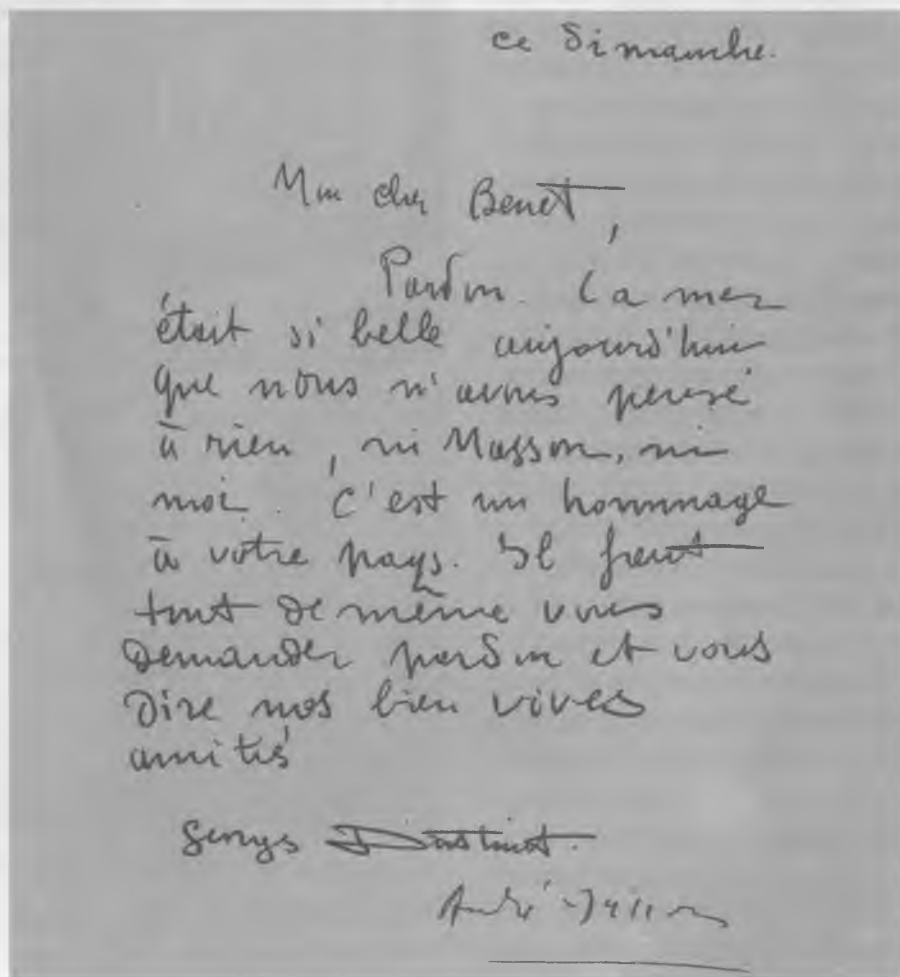 ce dimanche.
Mon cher Benet,
Pardon. La mer
était si belle aujourd'hui
que nous n'avons pensé
à rien, ni Masson, ni
moi. C'est un hommage
à votre pays. Il faut
tout de même vous
demander pardon et vous
dire nos bien vives
amitiés
Georges
André Masson